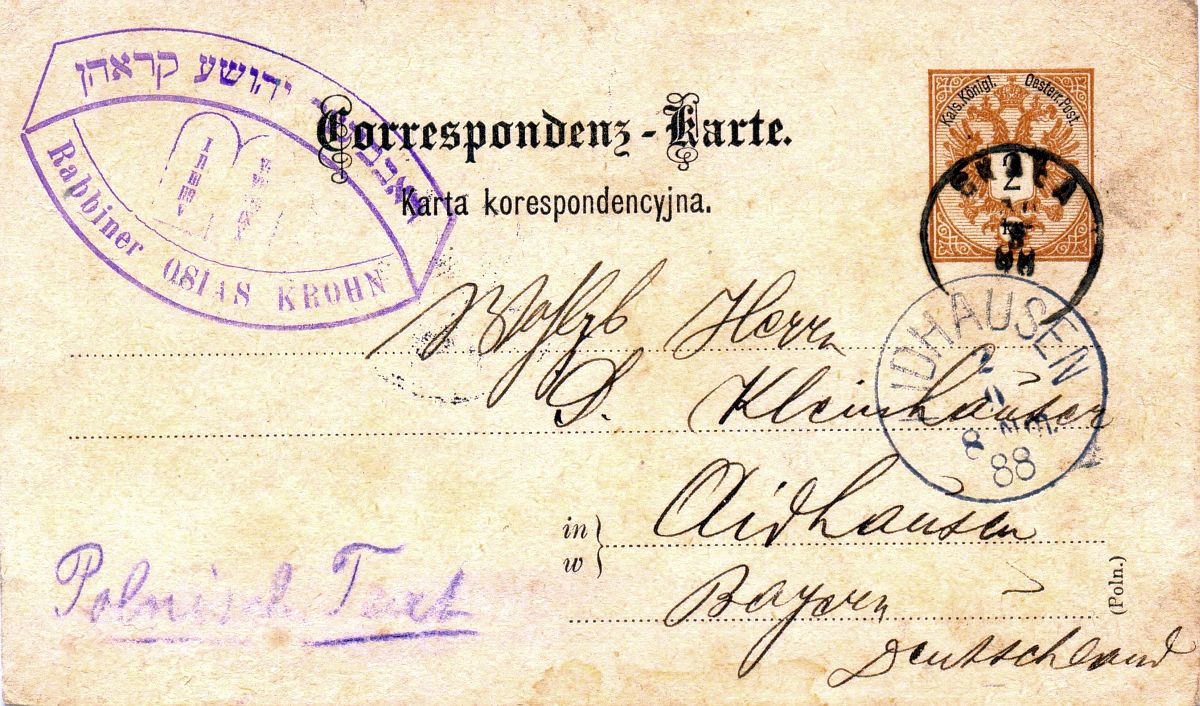 יהושע קראהן
Rabbiner OSIAS KROHN
Correspondenz-Karte.
Karta korespondencyjna.
Kais. Königl. Oesterr. Post
2
88
IDHAUSEN
8
88
Herrn
S. Kleinhäuser
in
w
Aidhausen
Bayern
Deutschland
(Poln.)
Polnisch Text